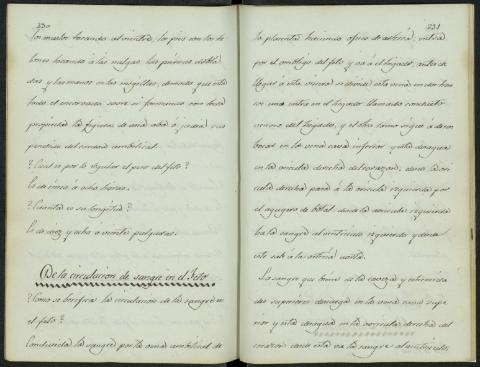 230
los muslos tocando al vientre, los pies con los ta-
lones tocando à las nalgas las piernas dobla-
das y las manos en las megillas, demodo que esta
todo el encorvado sovre si formando con toda
propiedad la figura de una aba ò judia sus
pendida del cordon umbilical.
? Cual es por lo regular el peso del feto?
Es de cinco à ocho libras.
? Cuanta es su longitud?
Es de diez y ocho a veinte pulgadas.
De la circulacion de sangre en el Feto
? Como se berifica la circulacion de la sangre en
el feto?
Conducida la sangre por la vena umbilical de
231
la placenta haciendo oficio de arteria, entra
por el ombligo del feto y và à el higado, antes de
llegar à esta viscera se divide esta vena en dos tron
cos: una entra en el higado llamado conducto
venoso del higado, y el otro tronco sigue à desem
bocar en la vena cava inferior y esta desagua
en la auricula derecha del corazon, de esta auri
cula derecha pasa à la auricula izquierda por
el agugero de botal: de esta auricula izquierda
ba la sangre al ventriculo izquierdo y de
este sale à la arteria aorta.
La sangre que biene de la caveza y estremida
des superiores desagua en la vena cava supe
rior y esta desagua en la auricula derecha del
corazon de esta va la sangre al ventriculo,